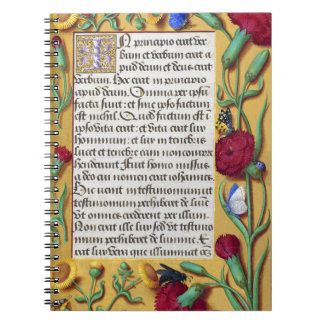 In principio erat ver
bum et verbum erat a
pud deum et deus erat
verbum. Hoc erat in principio
apud deum. Omnia per ipsū
facta sunt: et sine ipso factum
est nichil. Quod factum est in
ipso vita erat: et vita erat lux
hominum: et lux in tenebris
lucet et tenebre eam non compre
henderunt. Fuit homo missus
a deo cui nomen erat iohannes.
Hic venit in testimonium
testimonium perhiberet de lumīe
Vt omnes crederent per illum.
Non erat ille lux sed vt testimo
nium perhiberet de lumine. E
rat lux vera que illuminat om